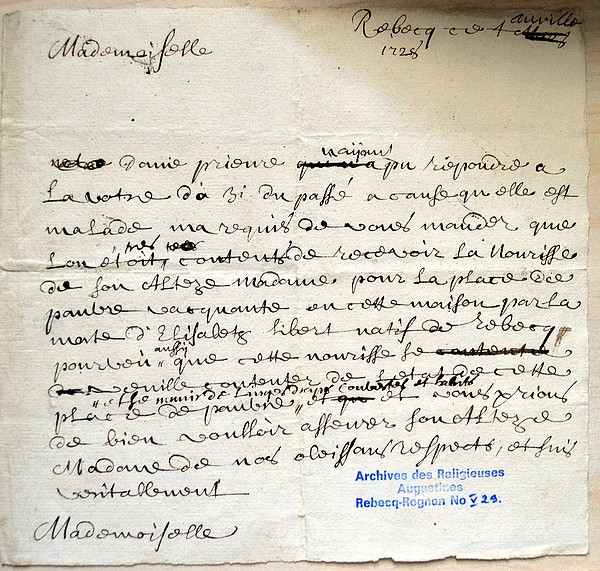 Rebecq ce 4 avrille
1728
Mademoiselle
notre Dame prieure n'aÿant pu repondre a
la votre du 31 du passé a cause qu'elle est
malade ma requis de vous mander que
lon etoit tres contents de recevoir la Nourisse
de son Alteze Madame pour la place de
paubre vacquante en cette maison par la
mate d'Elisabetz libert natif de Rebecq
pourveu aussy que cette nourisse se
veuille contenter de letat de cette
et se munir de Linges draps Couvertes et habits
place de paubre et et vous prions
de bien voulloir asseurer son Alteze
Madame de nos obeissans respects, et suis
veritallement
Mademoiselle
Archives des Religieuses
Augustines
Rebecq-Rognon No V 29.